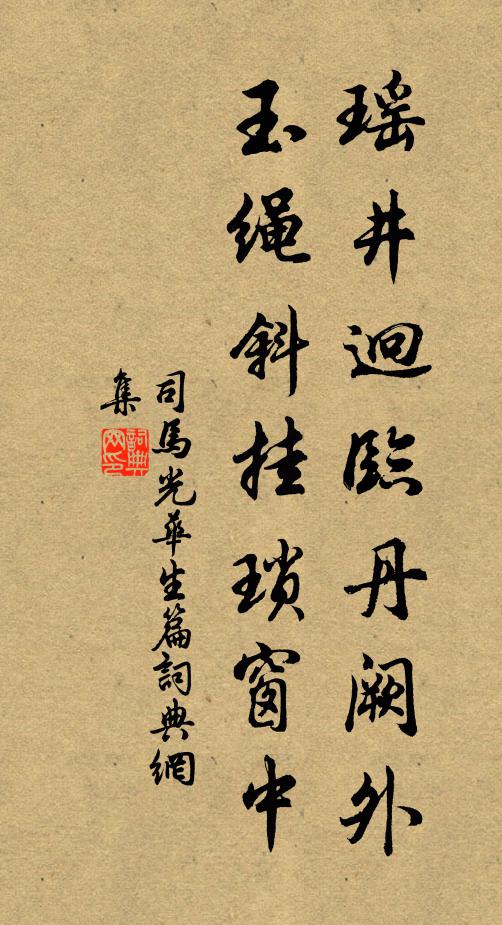 瑶井迥臨丹阙外
玉绳斜挂瑣窗中
司馬光華生篇詞典網
集
詞典
网印